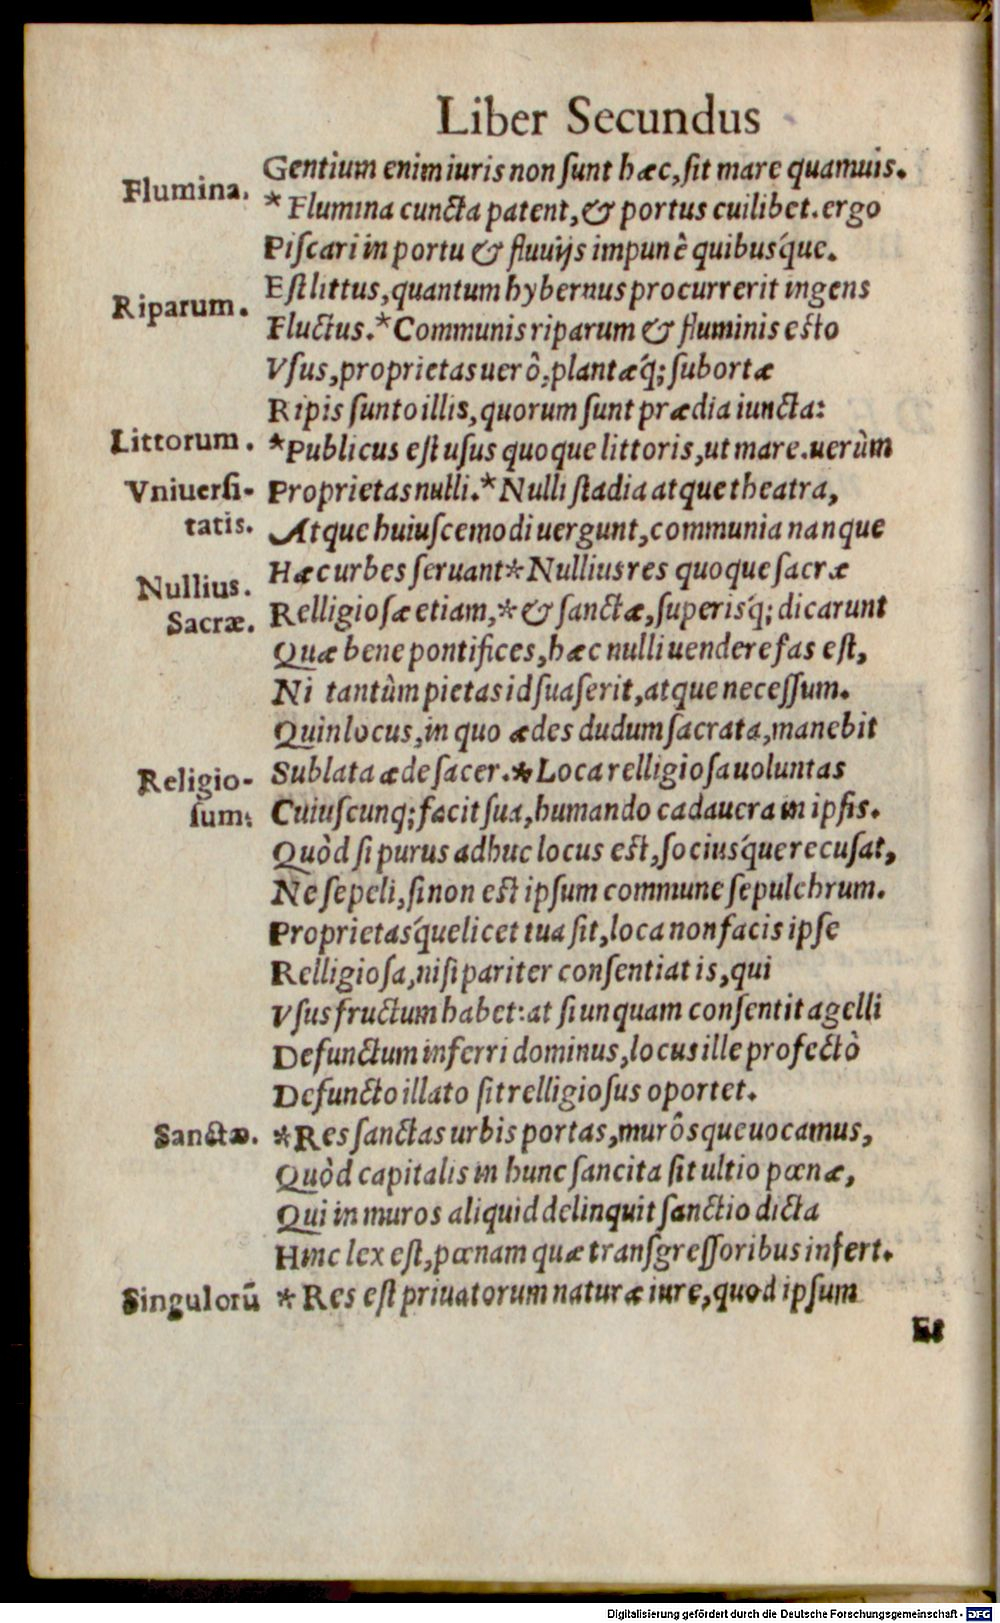 Liber Secundus
Gentium enim iuris non ſunt hæc, ſit mare quamuis.
Flumina. * Flumina cuncta patent, & portus cuilibet. ergo
Piſcari in portu & fluuijs impunè quibusq́ue.
Eſt littus, quantum hybernus procurrerit ingens
Riparum. Fluctus. * Communis riparum & fluminis eſto
Vſus, proprietas uerò, plantæq́; ſubortæ
Ripis ſunto illis, quorum ſunt prædia iuncta:
Littorum. * Publicus eſt uſus quoque littoris, ut mare. uerùm
Vniuerſi- Proprietas nulli. * Nulli ſtadia atque theatra,
tatis. Atque huiuſcemodi uergunt, communia nanque
Nullius. Hæc urbes ſeruant * Nullius res quoque ſacræ
Sacræ. Relligioſæ etiam, * & ſanctæ, ſuperisq́; dicarunt
Quæ bene pontifices, hæc nulli uendere fas eſt,
Ni tantùm pietas id ſuaſerit, atque neceſſum.
Quin locus, in quo ædes dudum ſacrata, manebit
Religio- Sublata æde ſacer. * Loca relligioſa uoluntas
ſum: Cuiuſcunq; facit ſua, humando cadauera in ipſis.
Quòd ſi purus adhuc locus eſt, ſociusq́ue recuſat,
Ne ſepeli, ſi non eſt ipſum commune ſepulchrum.
Proprietasq́ue licet tua ſit, loca non facis ipſe
Relligioſa, niſi pariter conſentiat is, qui
Vſusfructum habet: at ſi unquam conſentit agelli
Defunctum inferri dominus, locus ille profectò
Defuncto illato ſit relligioſus oportet.
Sanctæ. * Res ſanctas urbis portas, murôsque uocamus,
Quòd capitalis in hunc ſancita ſit ultio pœnæ,
Qui in muros aliquid delinquit ſanctio dicta
Hinc lex eſt, pœnam quæ tranſgreſſoribus infert.
Singulorũ * Res eſt priuatorum naturæ iure, quod ipſum
Et
Digitalisierung gefördert durch die Deutsche Forschungsgemeinschaft - DFG